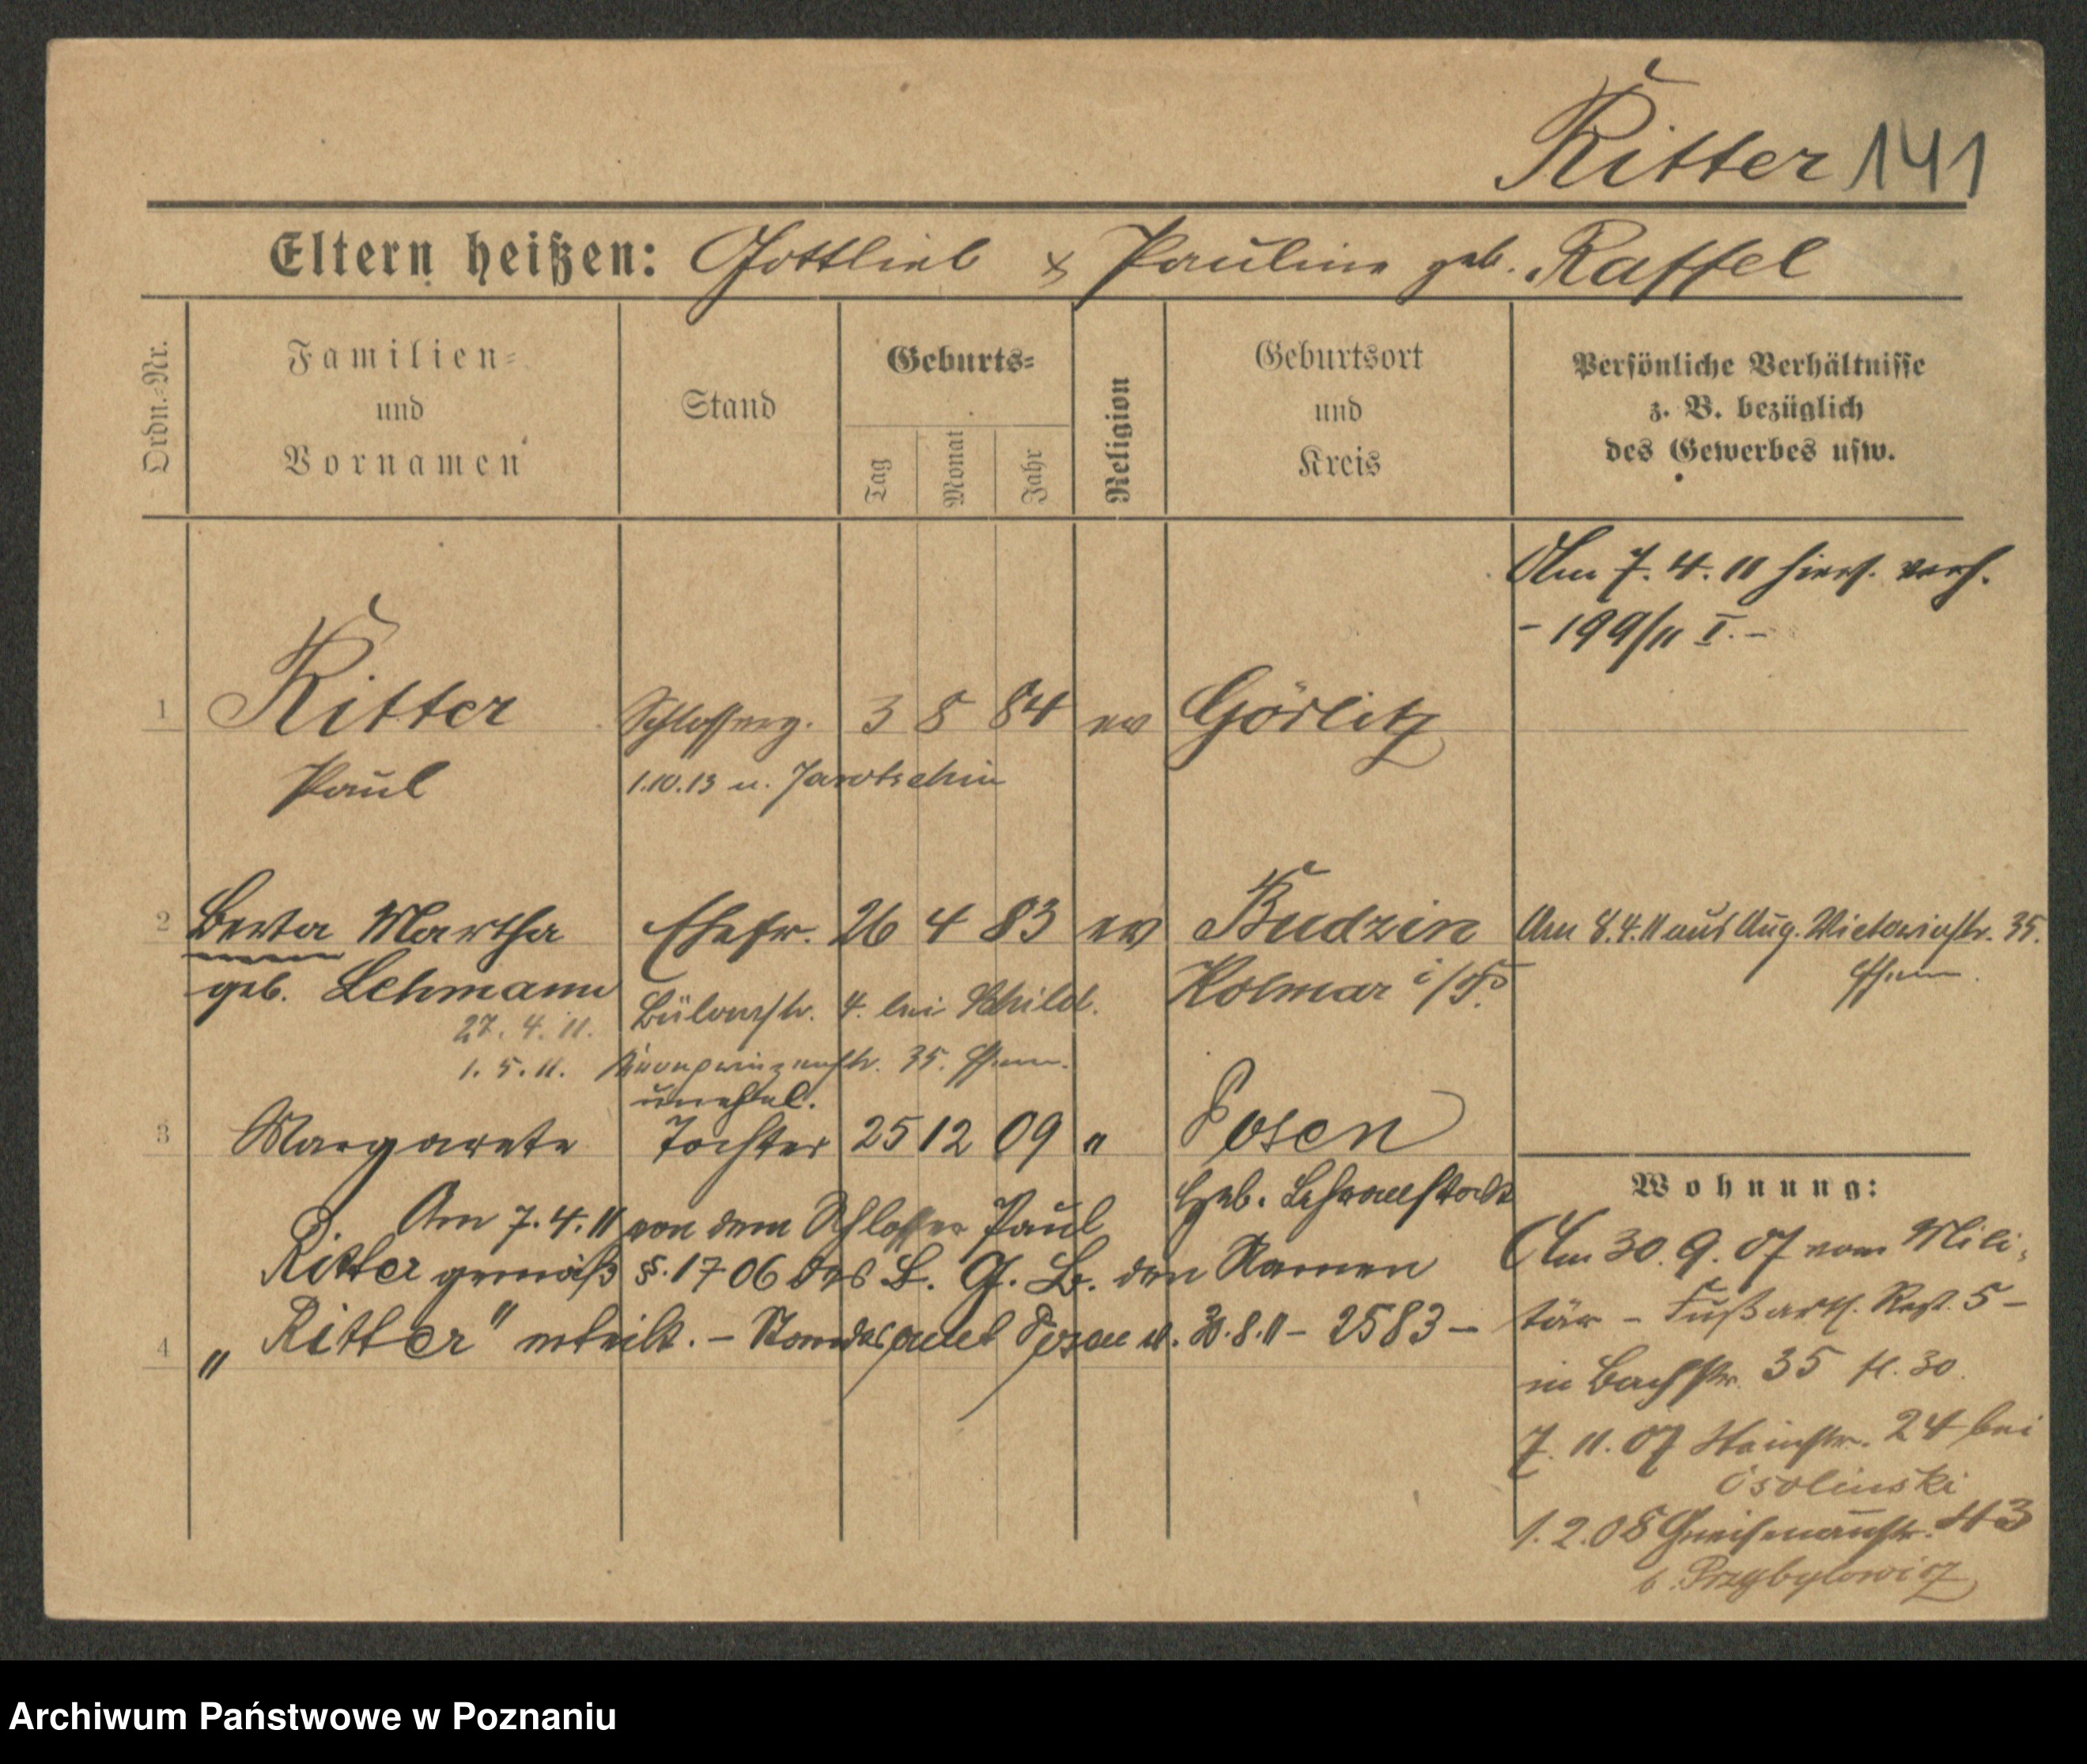 Ritter 141
Eltern heißen: Gottlieb & Pauline geb. Raffel
Ordn.-Nr.
Familien-
und
Vornamen
Stand
Geburts-
Tag
Monat
Jahr
Religion
Geburtsort
und
Kreis
Persönliche Verhältnisse
z. B. bezüglich
des Gewerbes usw.
Am 7. 4. 11 hiers. verh.
- 199/11 I. -
1 Ritter Schlosserg. 3 8 84 ev Görlitz
Paul 1.10.13 n. Jarotschin
2 Berta Martha Ehefr. 26 4 83 ev Budzin Am 8.4.11 aus Aug. Victoriastr. 35.
geb. Lehmann Kolmar i/P.
27. 4. 11. Bülowstr. 4. bei Schild.
1. 5. 11. Kronprinzenstr. 35.
unehel.
3 Margarete Tochter 25 12 09 " Posen
Heb. Lehranstalt
Am 7. 4. 11 von dem Schlosser Paul
Ritter gemäß §. 1706 des B. G. B. den Namen
4 „Ritter" erteilt. - Standesamt Posen 30. 8. 11 - 2583 -
Wohnung:
Am 30. 9. 07 vom Mili-
tär - Fußartl. Regt. 5 -
in Bachstr. 35 30.
7. 11. 07 Hainstr. 24 bei
Osolinski
1. 2. 08 Gneisenaustr. 43
b. Przybylowicz
Archiwum Państwowe w Poznaniu